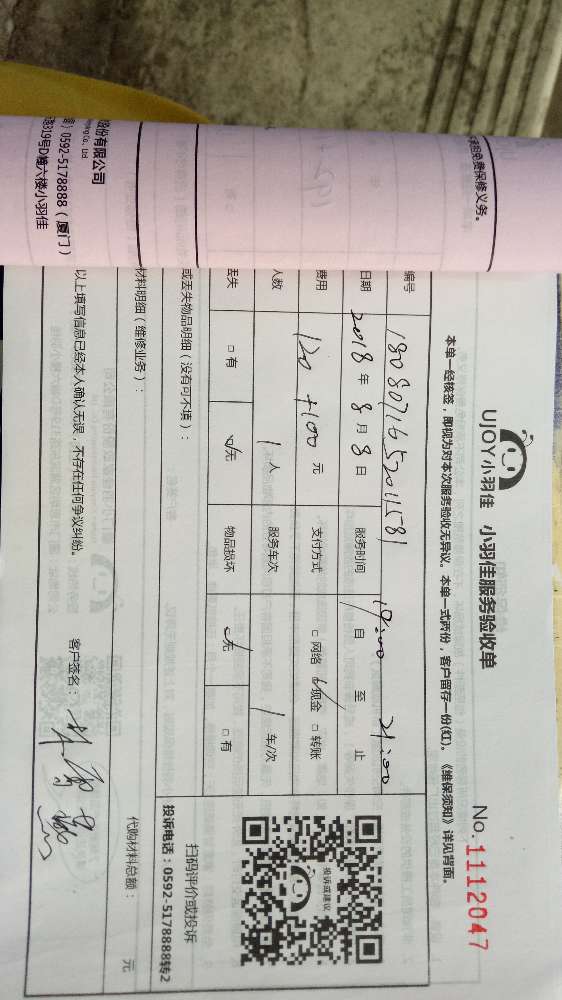 UJOY小羽佳 小羽佳服务验收单
No.11112047
本单一经核签，即视为对本次服务验收无异议。本单一式两份，客户留存一份(红)。《维保须知》详见背面。
编号 18080716520111581
日期 2018 年 8 月 8 日 服务时间 19:00 自 至 21:00 止
费用 120+100 元 支付方式 □网络 ☑现金 □转账
人数 1 人 服务车次 1 车/次
丢失 □有 ☑无 物品损坏 ☑无 □有
或丢失物品明细（没有可不填）：
材料明细（维修业务）：
投诉或建议
扫码评价或投诉
投诉电话：0592-5178888转2
代购材料总额： 元
以上填写信息已经本人确认无误，不存在任何争议纠纷。 客户签名：
免费保修义务。
股份有限公司
Co., Ltd
0592-5178888（厦门）
819号D幢六楼小羽佳